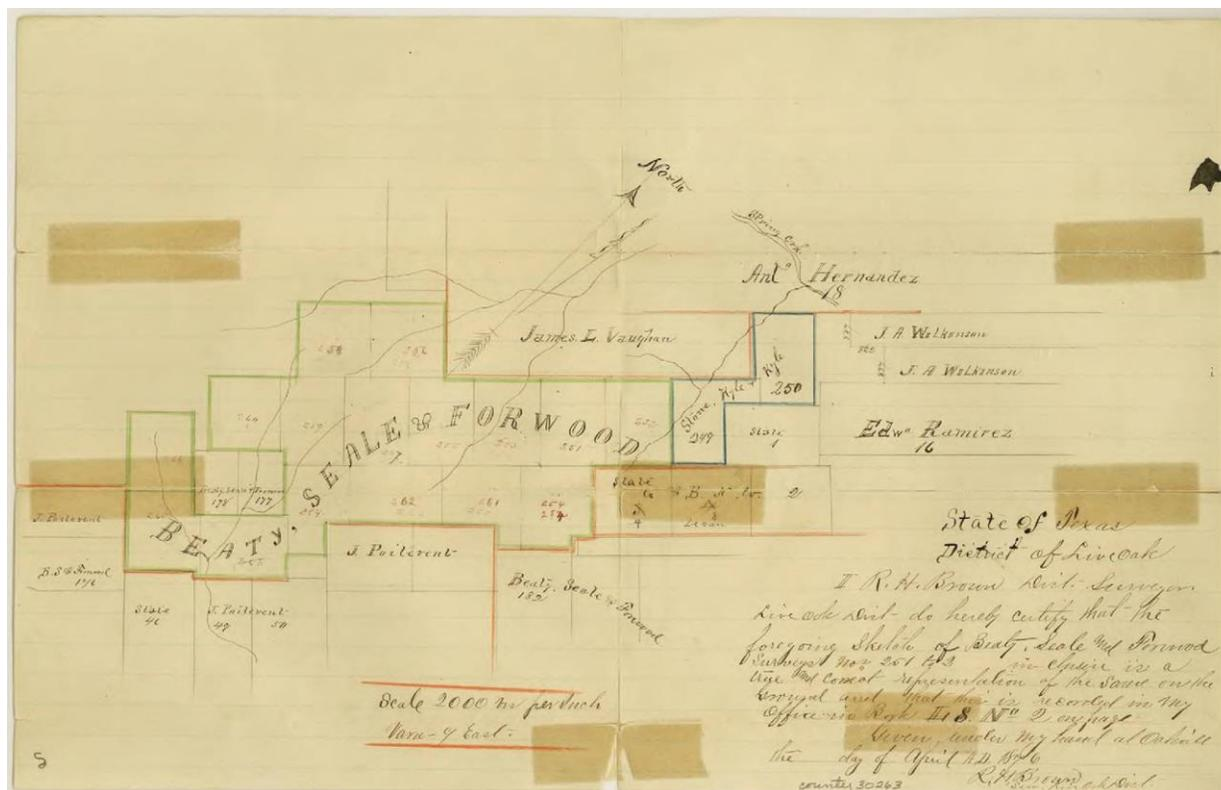 North
Spring Crk.
Ant.º Hernandez
18
James. L. Vaughan
J. A Wolkonson
J. A Wolkonson
Stone, Kyle & Kyle
250
249
State
1
Edwº Ramirez
16
BEATY, SEALE & FORWOOD
178
177
262
261
254
State
2
4
J. Poitevent
J. Poitevent
B. S & Forwood
176
Beaty, Seale & Forwood
182
State
46
J. Poitevent
49
50
Scale 2000 in per Inch
Vara - 9 East.
State of Texas
District of Live Oak
I R. H. Brown Dist. Surveyor
Live Oak Dist- do hereby certify that the
foregoing Sketch of Beaty, Seale and Forwood
Surveys Nos 251 to 2 in clusive is a
true and Correct representation of the Same on the
Ground and that this is recorded in my
Office in Book S. Nº 2 on page
Given under my hand at Oakville
the day of April A.D. 1876
R. H. Brown
counter 30263
5